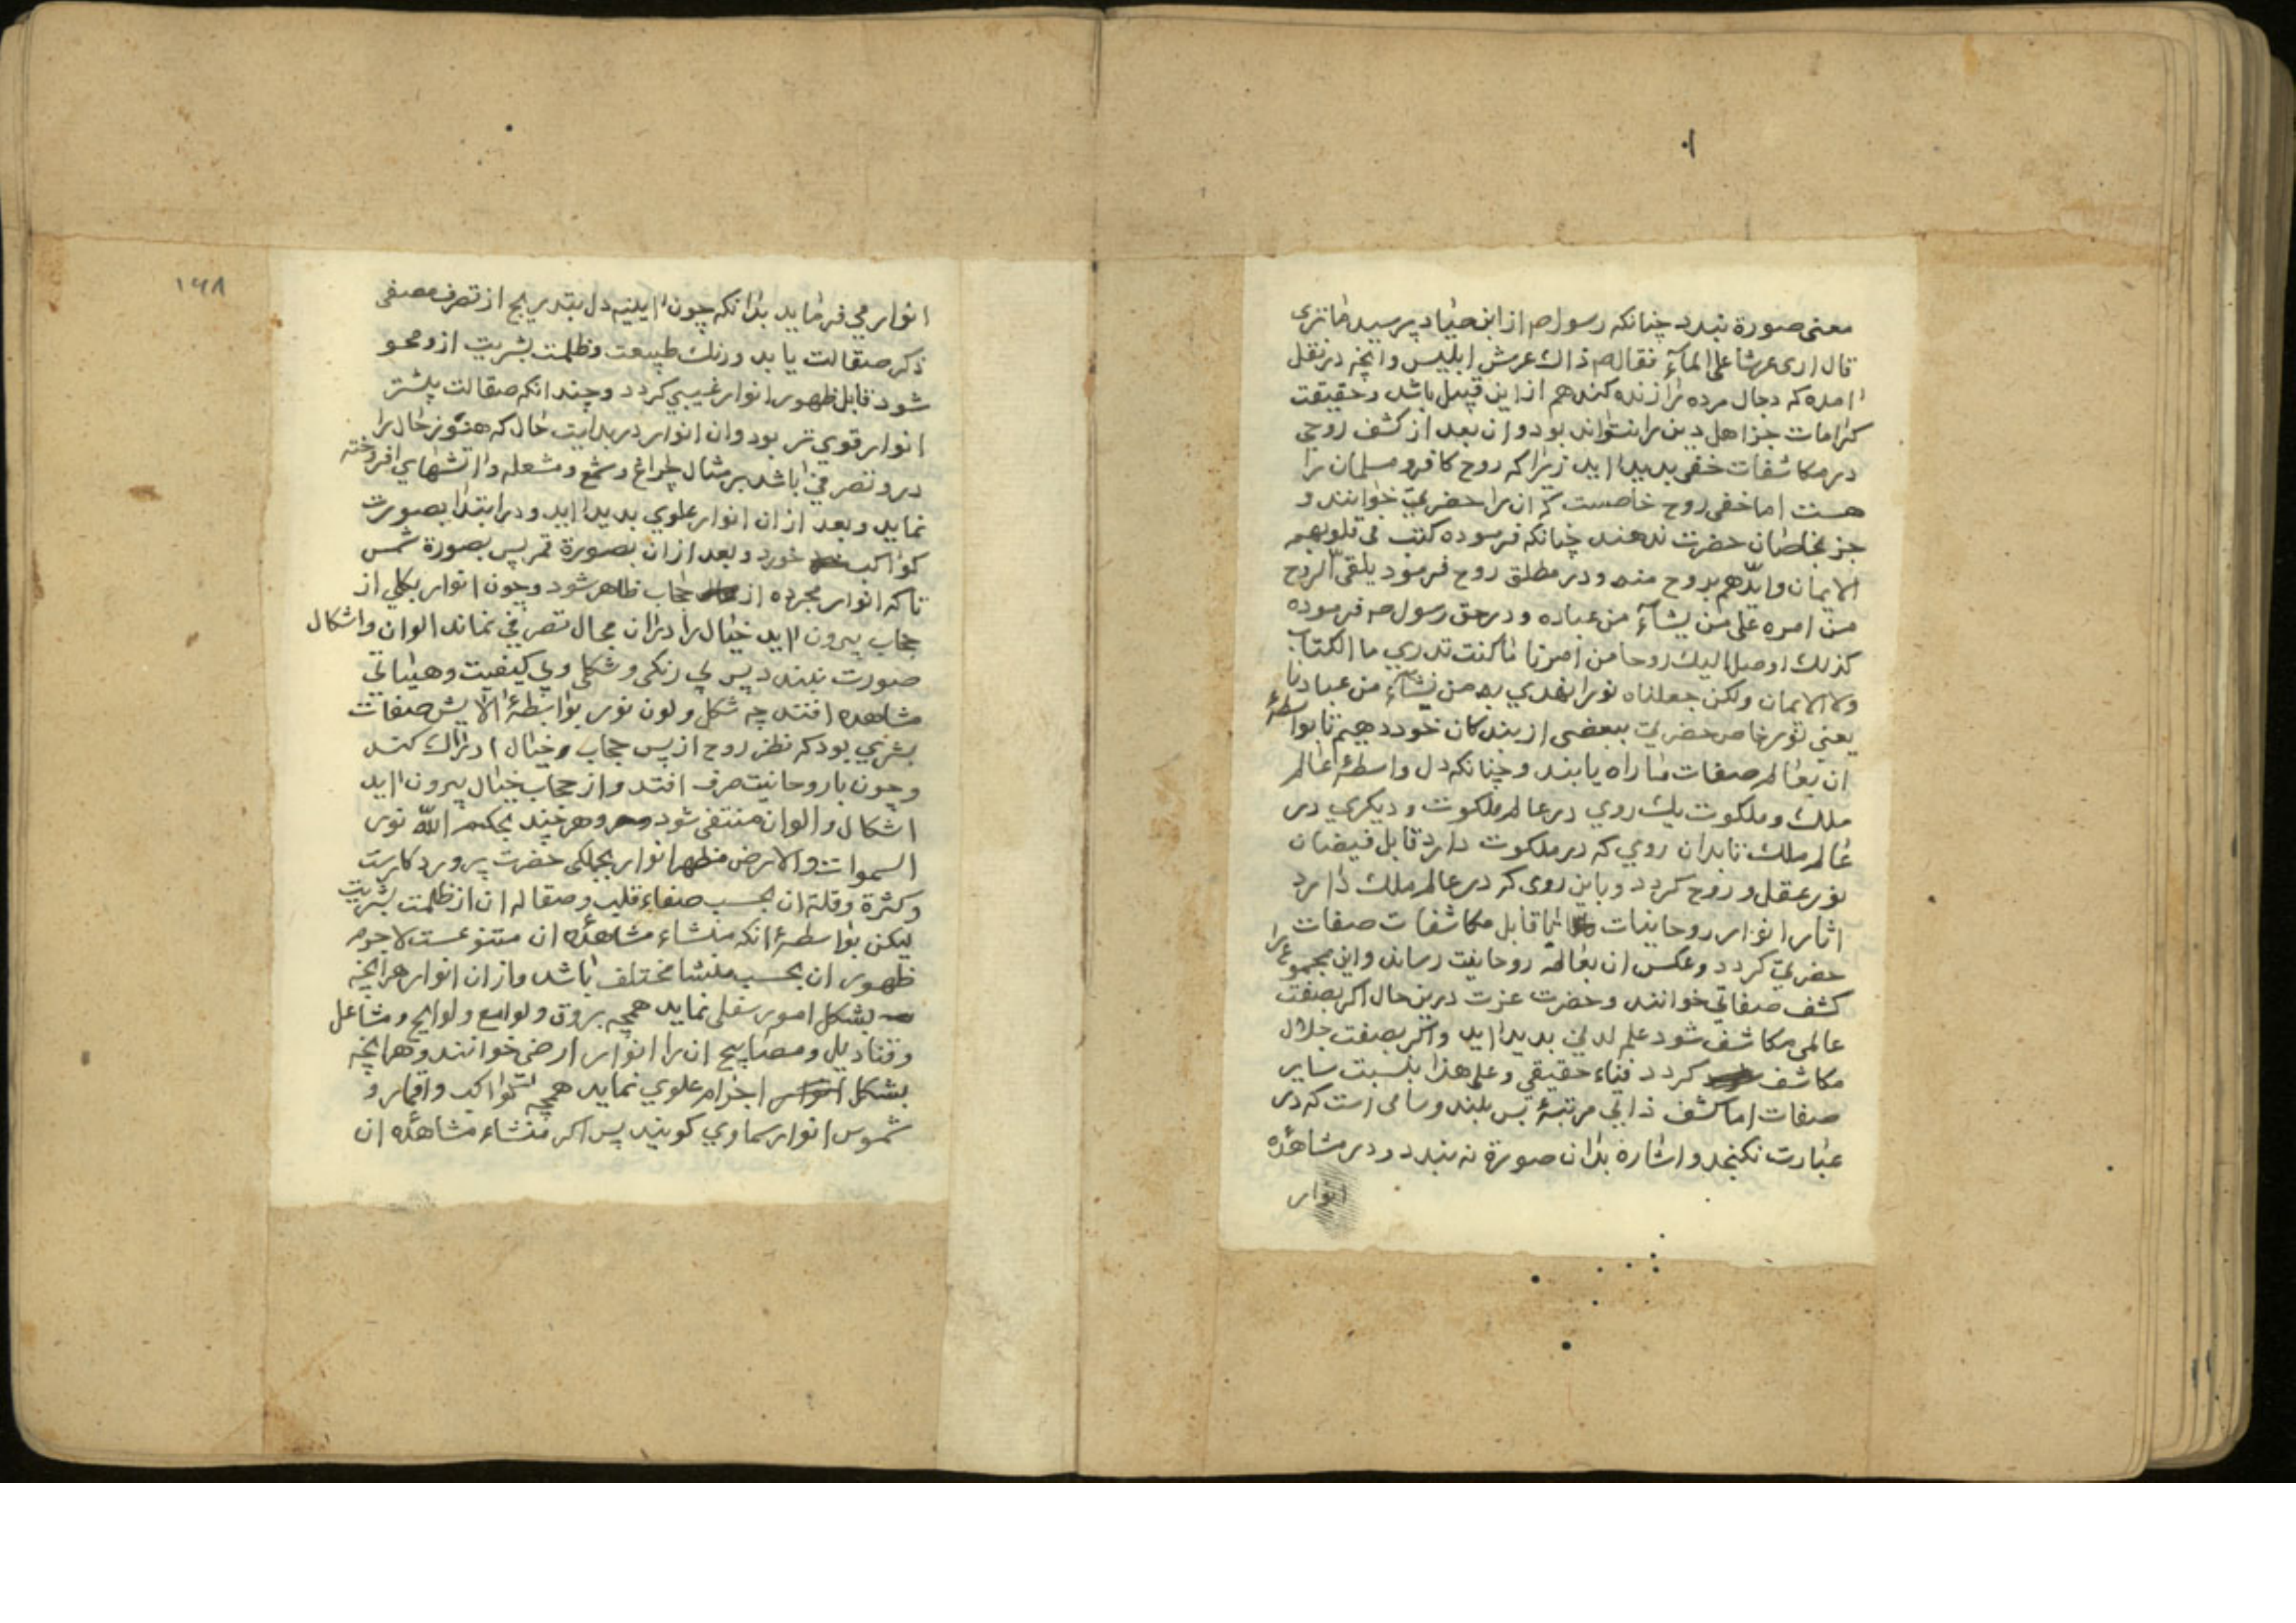 معنی صورة نبدد چنانکه رسول صم از ابن صیاد پرسید ما تری
قال اری عرشا علی المآء فقال صم ذاك عرش ابلیس وانچه در نقل
امده که دجال مرده را زنده کند هم از این قبیل باشد وحقیقت
کرامات جز اهل دین را نتواند بود وان بعد از کشف روحی
در مکاشفات خفی بدید اید زیرا که روح کافر ومسلمان را
هست اما خفی روح خاصست که ان را حضرتی خوانند و
جز بخاصان حضرت ندهند چنانکه فرموده کتب فی قلوبهم
الایمان وایدهم بروح منه ودر مطلق روح فرمود یلقی الروح
من امره علی من یشآء من عباده ودر حق رسول صم فرموده
کذلك اوحینا الیك روحا من امرنا ما کنت تدري ما الکتاب
ولا الایمان ولکن جعلناه نورا نهدي به من نشآء من عبادنا
یعنی نور خاص حضرتی ببعضی از بندکان خود دهیم تا بواسطهٔ
ان بعالم صفات ما راه یابند وچنانکه دل واسطهٔ عالم
ملك وملکوت یك روي در عالم ملکوت ودیکري در
عالم ملك تا بدان روي که در ملکوت دارد قابل فیضان
نور عقل وروح کردد وباین روی که در عالم ملك دارد
اثار انوار روحانیات قابل مکاشفات صفات
حضرتی کردد وعکس ان بعالم روحانیت رساند واین مجموع را
کشف صفاتي خوانند وحضرت عزت درین حال اکر بصفت
عالمی مکاشف شود علم لدنی بدید اید واکر بصفت جلال
مکاشف کردد فناء حقیقي وعلی هذا بنسبت سایر
صفات اما کشف ذاتي مرتبهٔ بس بلند وسامی است که در
عبارت نکنجد واشارة بدان صورة نه نبدد ودر مشاهدهٔ
انوار
۱۶۸
انوار می فرماید بدانکه چون ایینه دل بتدریج از تصرف مصفی
ذکر صقالت یابد ورنك طبیعت وظلمت بشریت ازو محو
شود قابل ظهور انوار غیبي کردد وچندانکه صقالت بیشتر
انوار قوي تر بود وان انوار در بدایت حال که هنوز خال را
درو تصرفی باشد بر مثال چراغ وشمع ومشعله واتشهاي افروخته
نماید وبعد از ان انوار علوي بدید اید ودر ابتدا بصورت
کواکب خورد وبعد از ان بصورة قمر پس بصورة شمس
تا که انوار مجرده از حجاب ظاهر شود وچون انوار بکلي از
حجاب بیرون اید خیال را در ان مجال تصرفي نماند الوان واشکال
صورت نبندد پس بي رنکی وشکلی وبي کیفیت وهیئاتي
مشاهده افتد چه شکل ولون نور بواسطهٔ الایش صفات
بشري بود که نظر روح از پس حجاب وخیال ادراك کند
وچون با روحانیت صرف افتد واز حجاب خیال بیرون اید
اشکال والوان منتفی شود وهر چند بحکم الله نور
السموات والارض مظهر انوار بجملکی حضرت پروردکارست
وکثرة وقلة ان بحسب صفاء قلب وصقاله ان از ظلمت بشریت
لیکن بواسطهٔ انکه منشاء مشاهدهٔ ان متنوعست لاجرم
ظهور ان بحسب منشا مختلف باشد واز ان انوار هر انچه
بشکل امور سفلی نماید همچه بروق ولوامع ولوایح ومشاعل
وقنادیل ومصابیح ان را انوار ارضی خوانند وهر انچه
بشکل اجرام علوي نماید همچه کواکب واقمار و
شموس انوار سماوي کویند پس اکر منشاء مشاهدهٔ ان